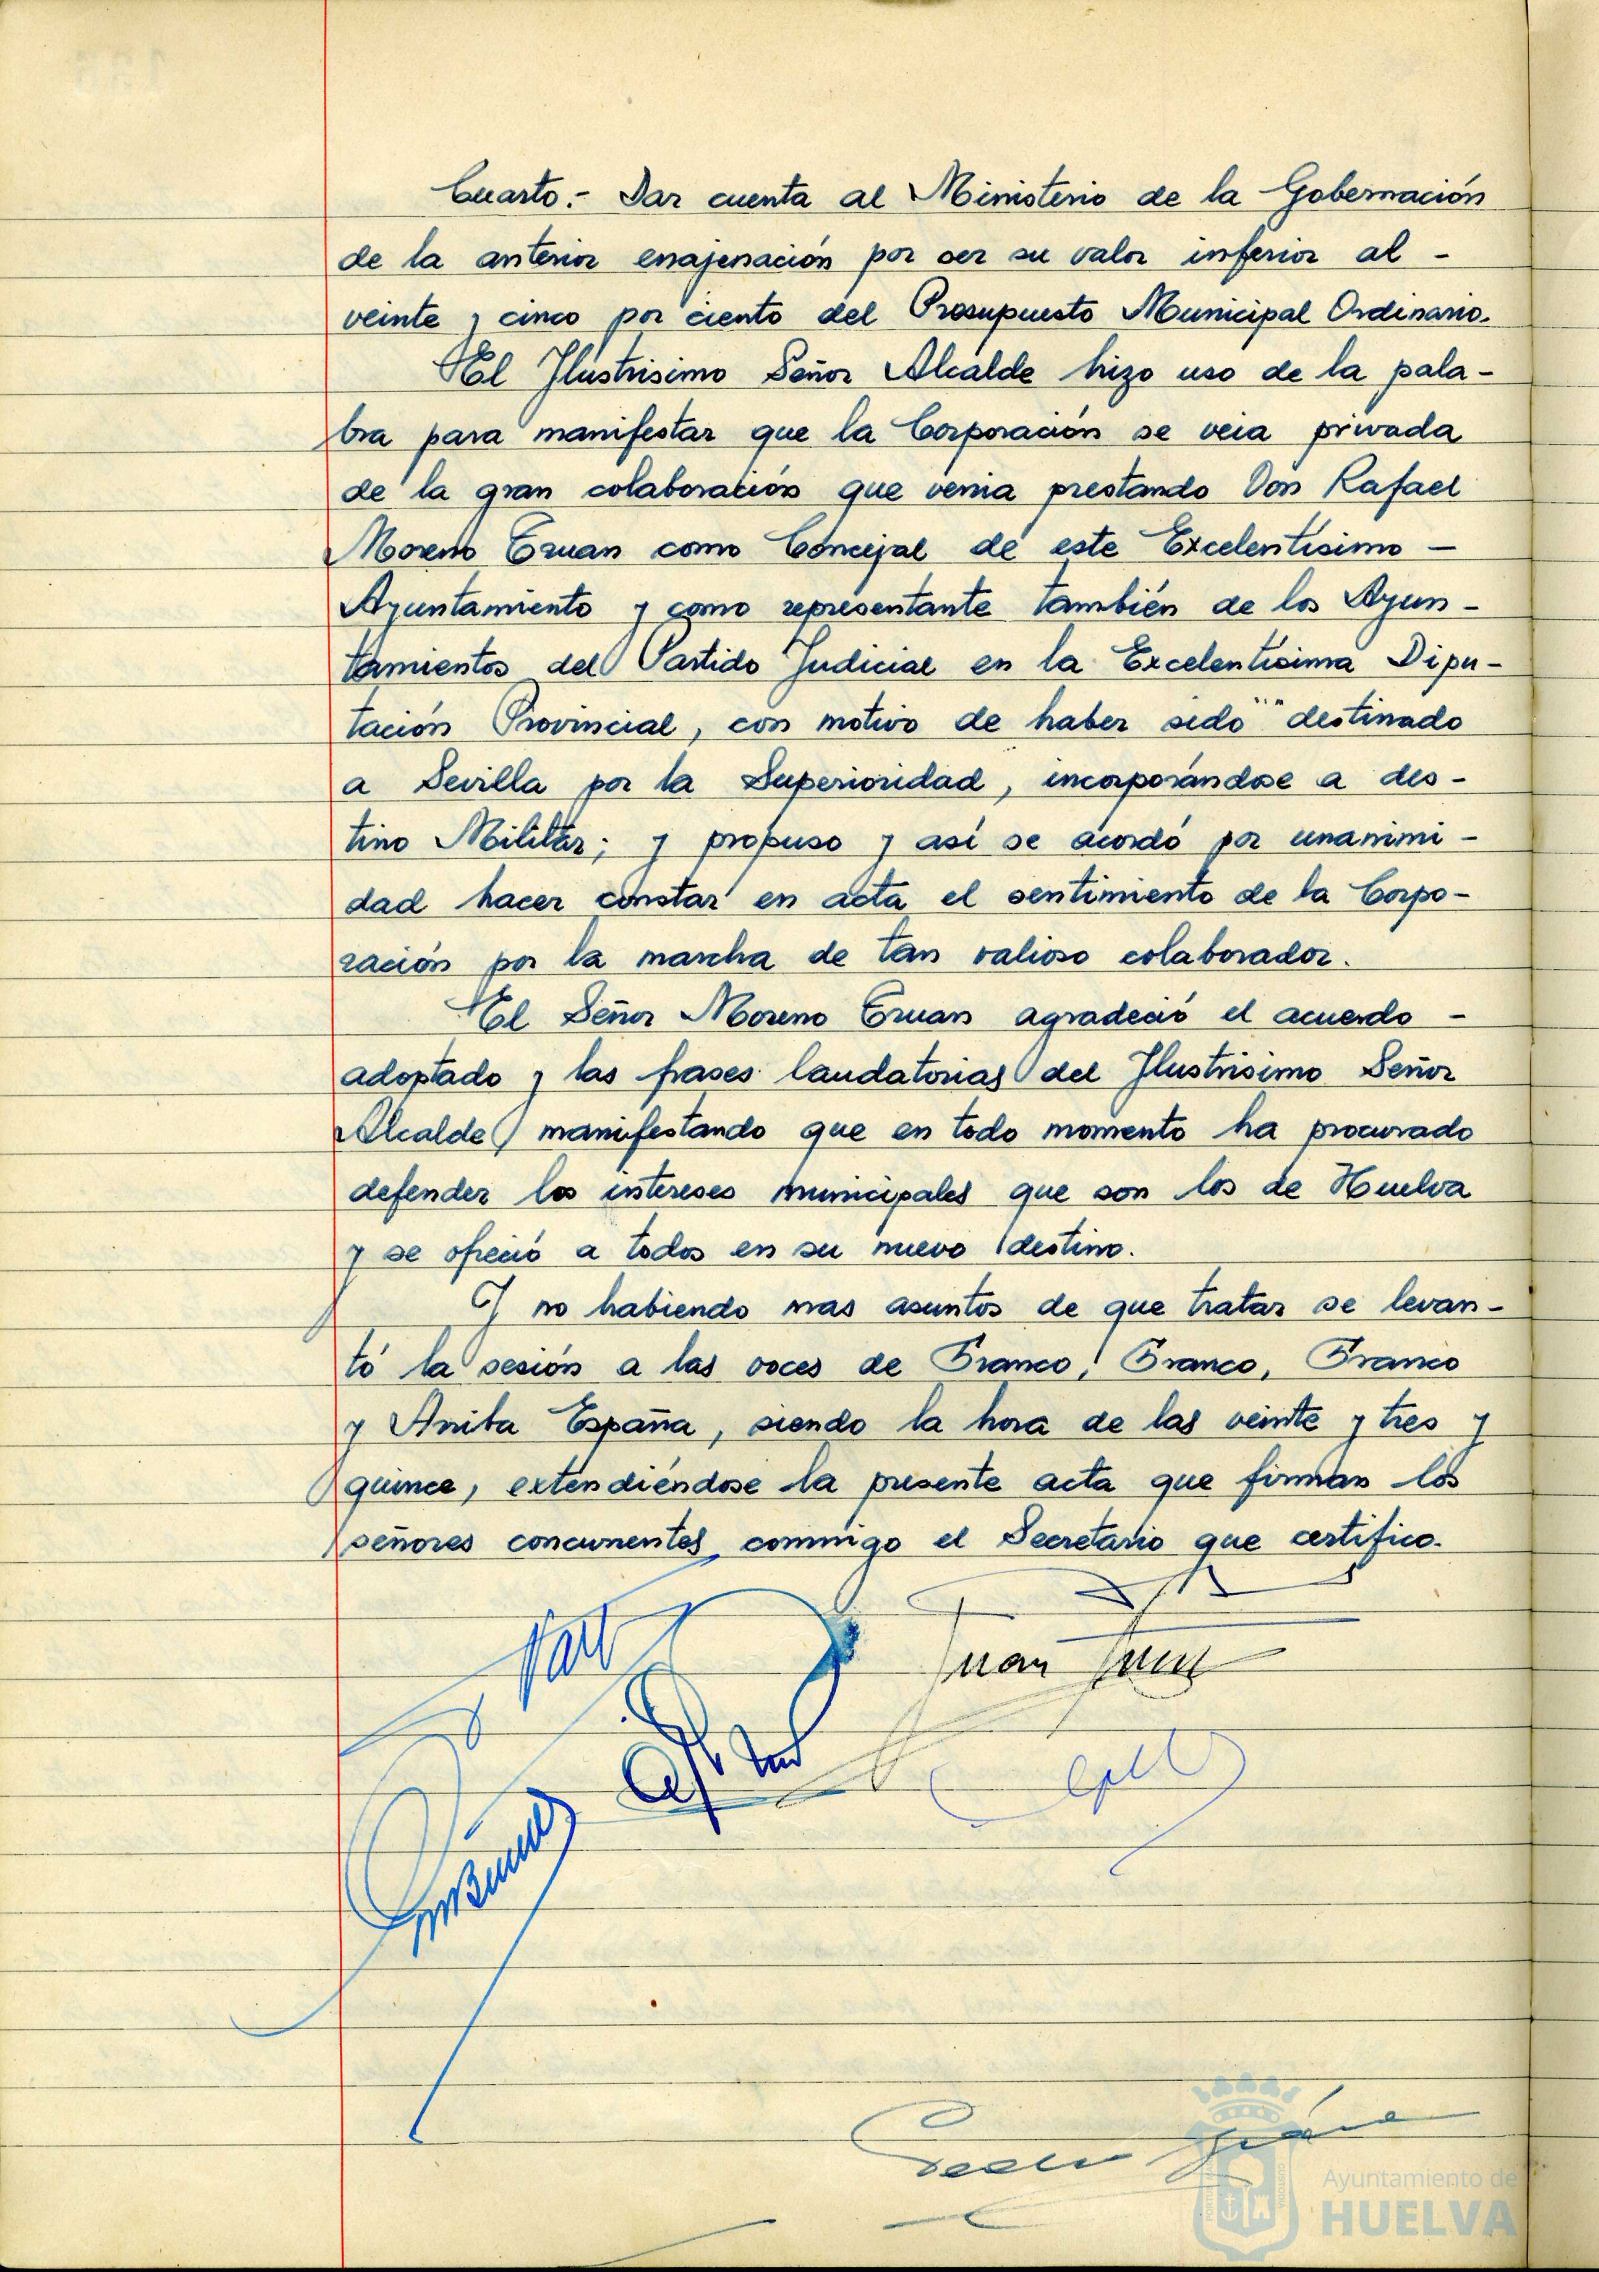 Cuarto.- Dar cuenta al Ministerio de la Gobernación
de la anterior enajenación por ser su valor inferior al -
veinte y cinco por ciento del Presupuesto Municipal Ordinario.
El Ilustrisimo Señor Alcalde hizo uso de la pala-
bra para manifestar que la Corporación se veia privada
de la gran colaboración que venia prestando Don Rafael
Moreno Eruan como Concejal de este Excelentísimo -
Ayuntamiento y como representante también de los Ayun-
tamientos del Partido Judicial en la Excelentísima Dipu-
tación Provincial, con motivo de haber sido destinado
a Sevilla por la Superioridad, incorporándose a des-
tino Militar; y propuso y así se acordó por unanimi-
dad hacer constar en acta el sentimiento de la Corpo-
ración por la marcha de tan valioso colaborador.
El Señor Moreno Eruan agradeció el acuerdo -
adoptado y las frases laudatorias del Ilustrisimo Señor
Alcalde, manifestando que en todo momento ha procurado
defender los intereses municipales que son los de Huelva
y se ofreció a todos en su nuevo destino.
Y no habiendo mas asuntos de que tratar se levan-
tó la sesión a las voces de Franco, Franco, Franco
y Arriba España, siendo la hora de las veinte y tres y
quince, extendiéndose la presente acta que firman los
señores concurrentes conmigo el Secretario que certifico.
Juan
Ayuntamiento de
HUELVA